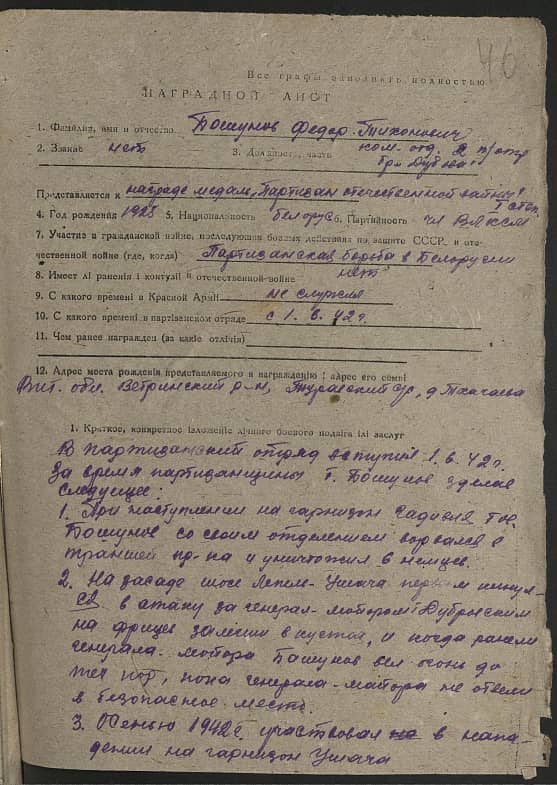 46
Все графы заполнять полностью
НАГРАДНОЙ ЛИСТ
1. Фамилия, имя и отчество Башунов Федор Тихонович
2. Звание нет 3. Должность, часть ком. отд.
бр. Дубова
Представляется к награде медал. Партизан отечественной войны I степ.
4. Год рождения 1925 5. Национальность белорус 6. Партийность чл ВЛКСМ
7. Участие в гражданской войне, последующих боевых действиях по защите СССР и оте-
чественной войне (где, когда) Партизанская борьба в Белорусии
8. Имеет лі ранения і контузиі в отечественной войне нет
9. С какого времени в Красной Армиі не служил
10. С какого времени в партізанском отряде с 1. 6. 42 г.
11. Чем ранее награжден (за какие отлічия)
12. Адрес места рождения представляемого к награждению і адрес его семьі
Вит. обл. Ветринский р-н, с/с, д Ткачева
1. Краткое, конкретное ізложеніе лічного боевого подвига ілі заслуг
В партизанский отряд вступил 1. 6. 42 г.
За время партизанщины т. Башунов зделал
следующее:
1. При наступлении на гарнизон тов.
Башунов со своим отделением ворвался в
траншеи пр-ка и уничтожил 8 немцев.
2. На засаде шосе Лепель-Ушача первым кинул-
ся в атаку за генерал-майором Дубровским
на фрицев залегши в кустах, и когда ранели
генерала-майора Башунов вел огонь до
тех пор, пока генерала-майора не отвели
в безопасное место.
3. Осенью 1942 г. участвовал в напа-
дении на гарнизон Ушача